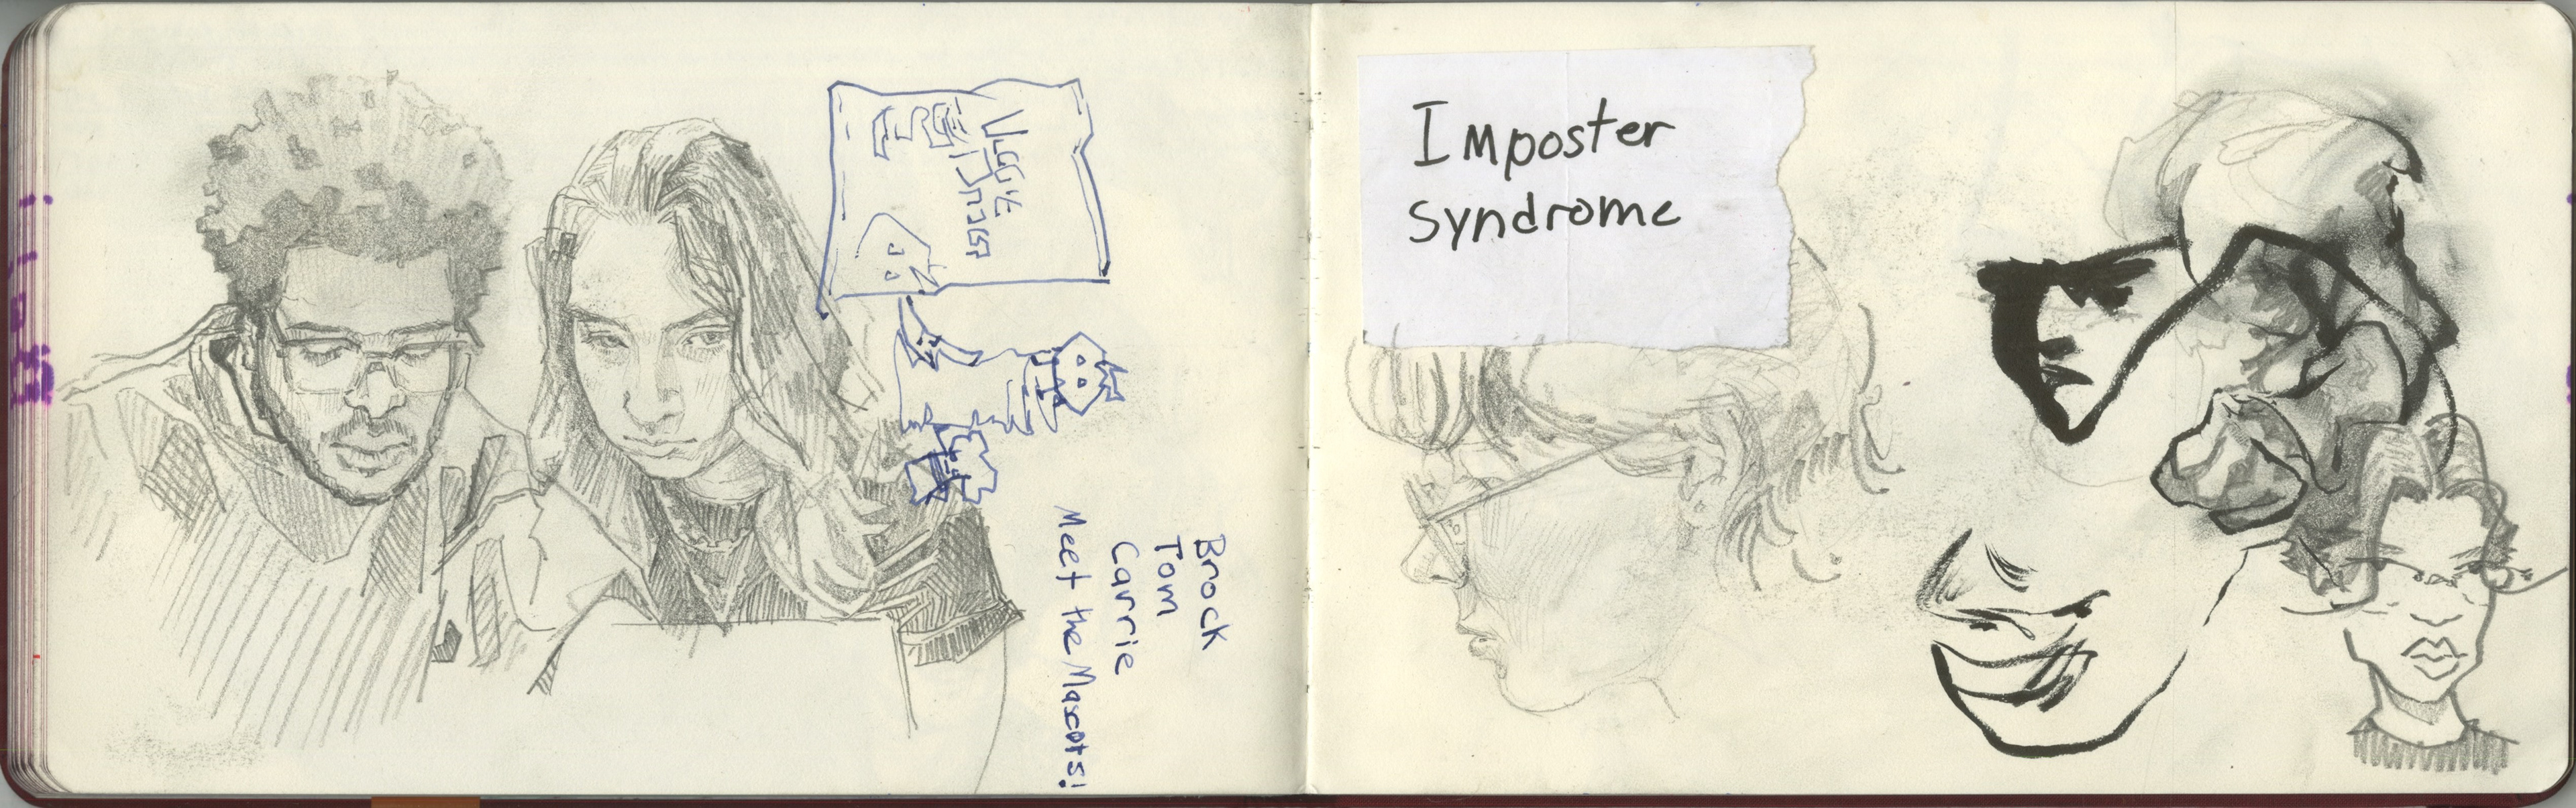 Brock
Tom
Carrie
Meet the Mascots!
Imposter
Syndrome